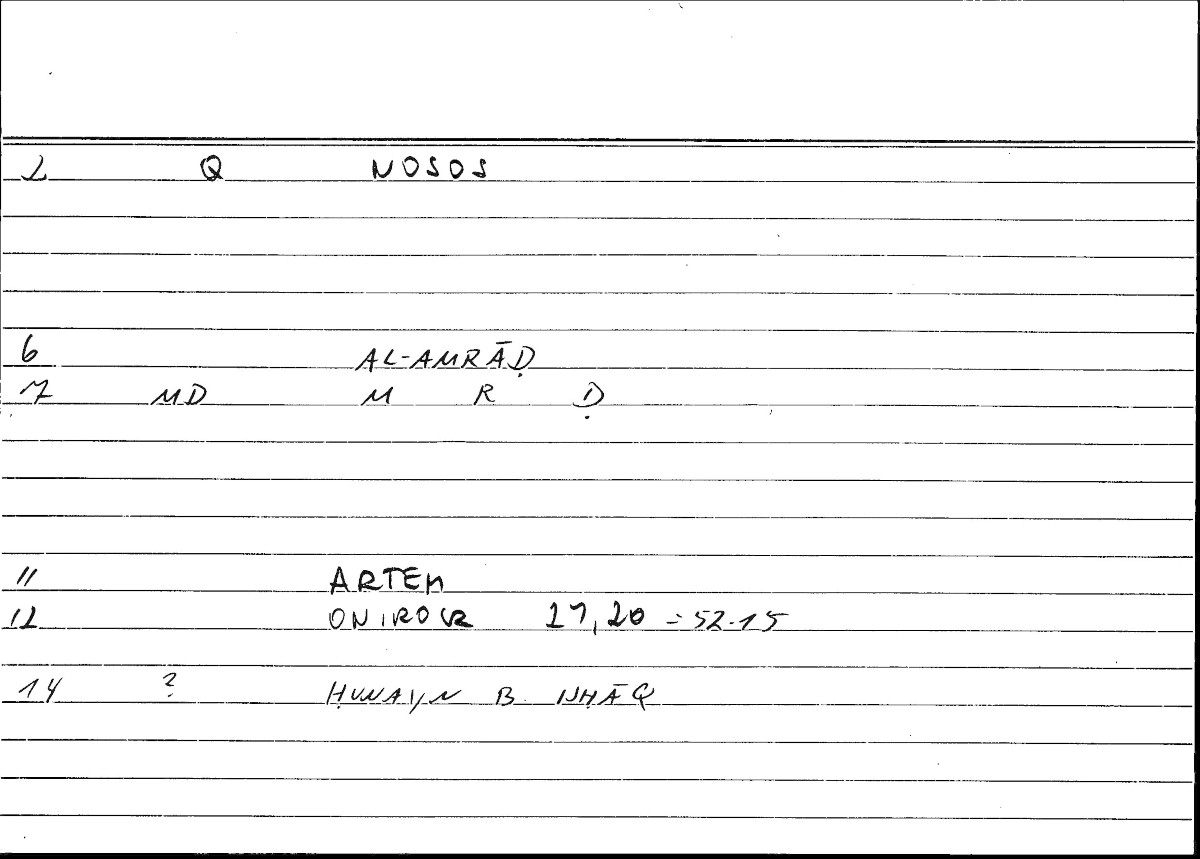 2 Q NOSOS
6 AL-AMRĀḌ
7 MD M R Ḍ
11 ARTEM
12 ONIROCR 27,20 = 52.15
14 ? ḤUNAYN B. ISḤĀQ